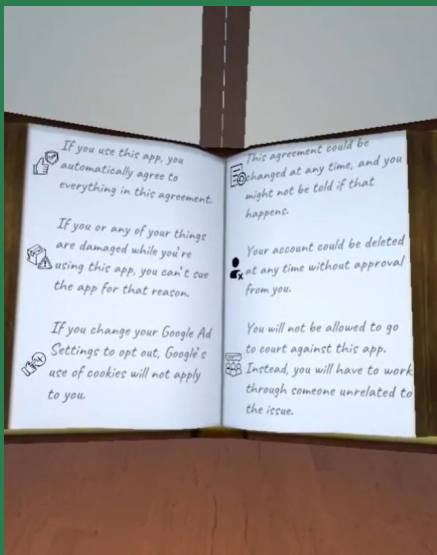 If you use this app, you
automatically agree to
everything in this agreement.
If you or any of your things
are damaged while you're
using this app, you can't sue
the app for that reason.
If you change your Google Ad
Settings to opt out, Google's
use of cookies will not apply
to you.
This agreement could be
changed at any time, and you
might not be told if that
happens.
Your account could be deleted
at any time without approval
from you.
You will not be allowed to go
to court against this app.
Instead, you will have to work
through someone unrelated to
the issue.